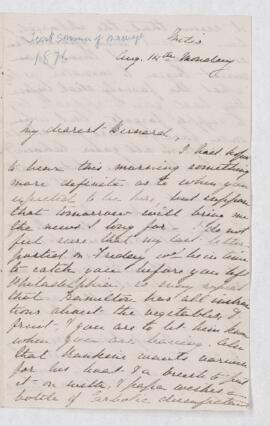 1876
Metis
Aug. 14th Monday
My dearest Bernard,
I had hoped
to hear this morning something
more definate as to when you
expected to be here, but suppose
that tomorrow will bring me
the news I long for. I do not
feel sure that my last letter
posted on Friday wd be in time
to catch you before you left
Philadelphia, so may repeat
that Hamilton has all instruc
tions about the vegetables, &
fruit. & you are to let him know
when you are leaving. Also
that wants varnish
for his boat & a brush to put
it on with, & papa wishes a
bottle of Carbolic disinfecting